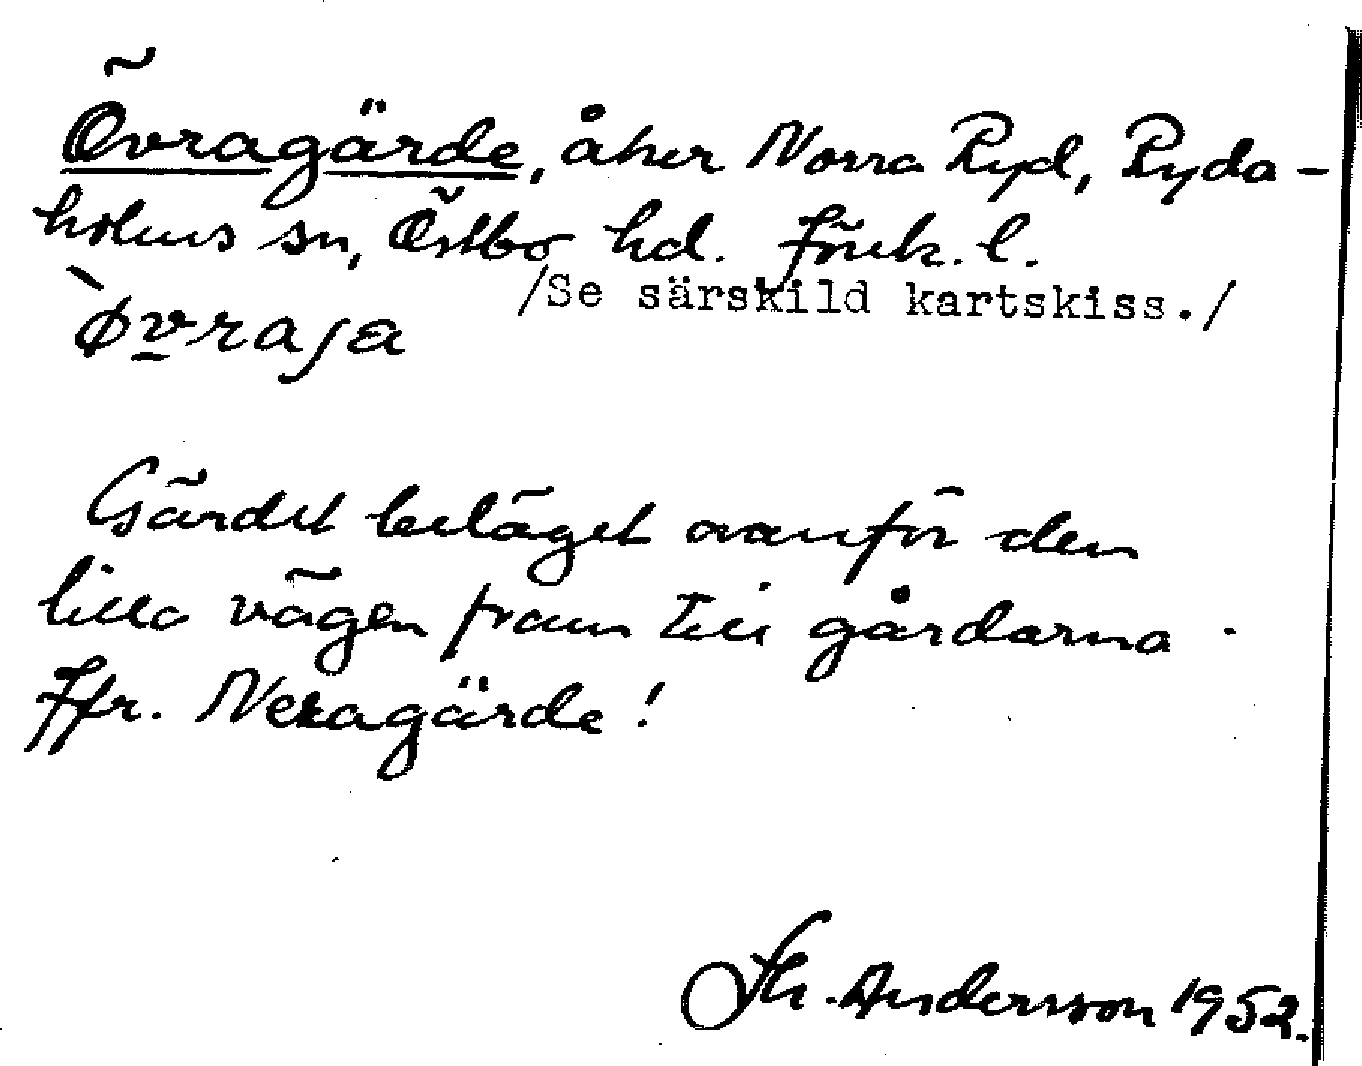 Övragärde, åker Norra Ryd, Ryda-
holms sn, Östbo hd. Jönk. l.
/Se särskild kartskiss./
`øvraja
Gärdet beläget ovanför den
lilla vägen fram till gårdarna.
Jfr. Neragärde!
Th. Andersson 1952.